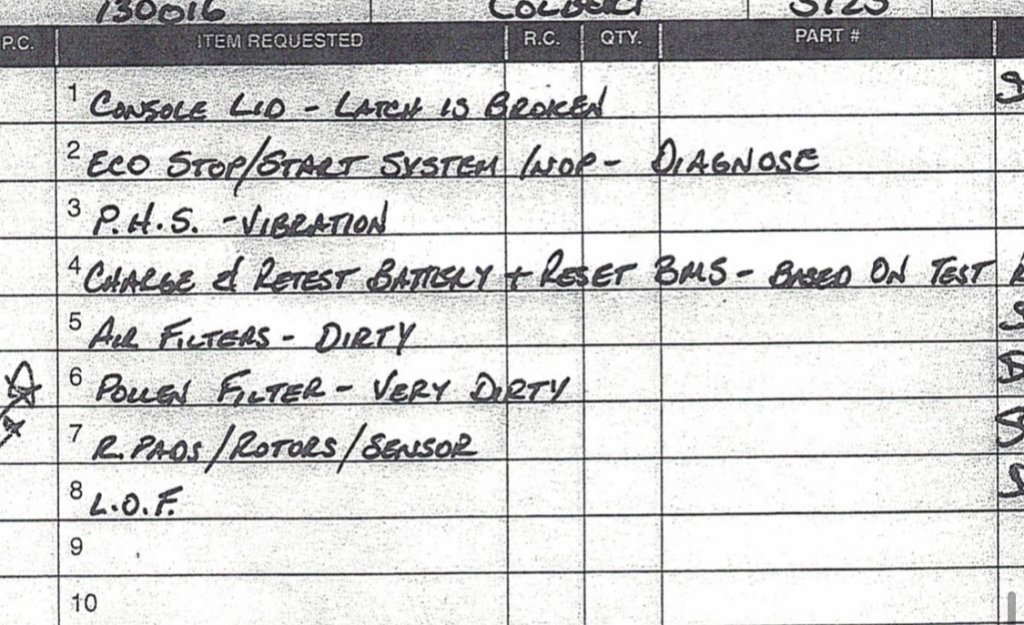 130016 COLBERT
P.C. ITEM REQUESTED R.C. QTY. PART #
1 CONSOLE LID - LATCH IS BROKEN
2 ECO STOP/START SYSTEM INOP - DIAGNOSE
3 P.H.S. - VIBRATION
4 CHARGE & RETEST BATTERY + RESET BMS - BASED ON TEST
5 AIR FILTERS - DIRTY
6 POLLEN FILTER - VERY DIRTY
7 R. PADS/ROTORS/SENSOR
8 L.O.F.
9
10